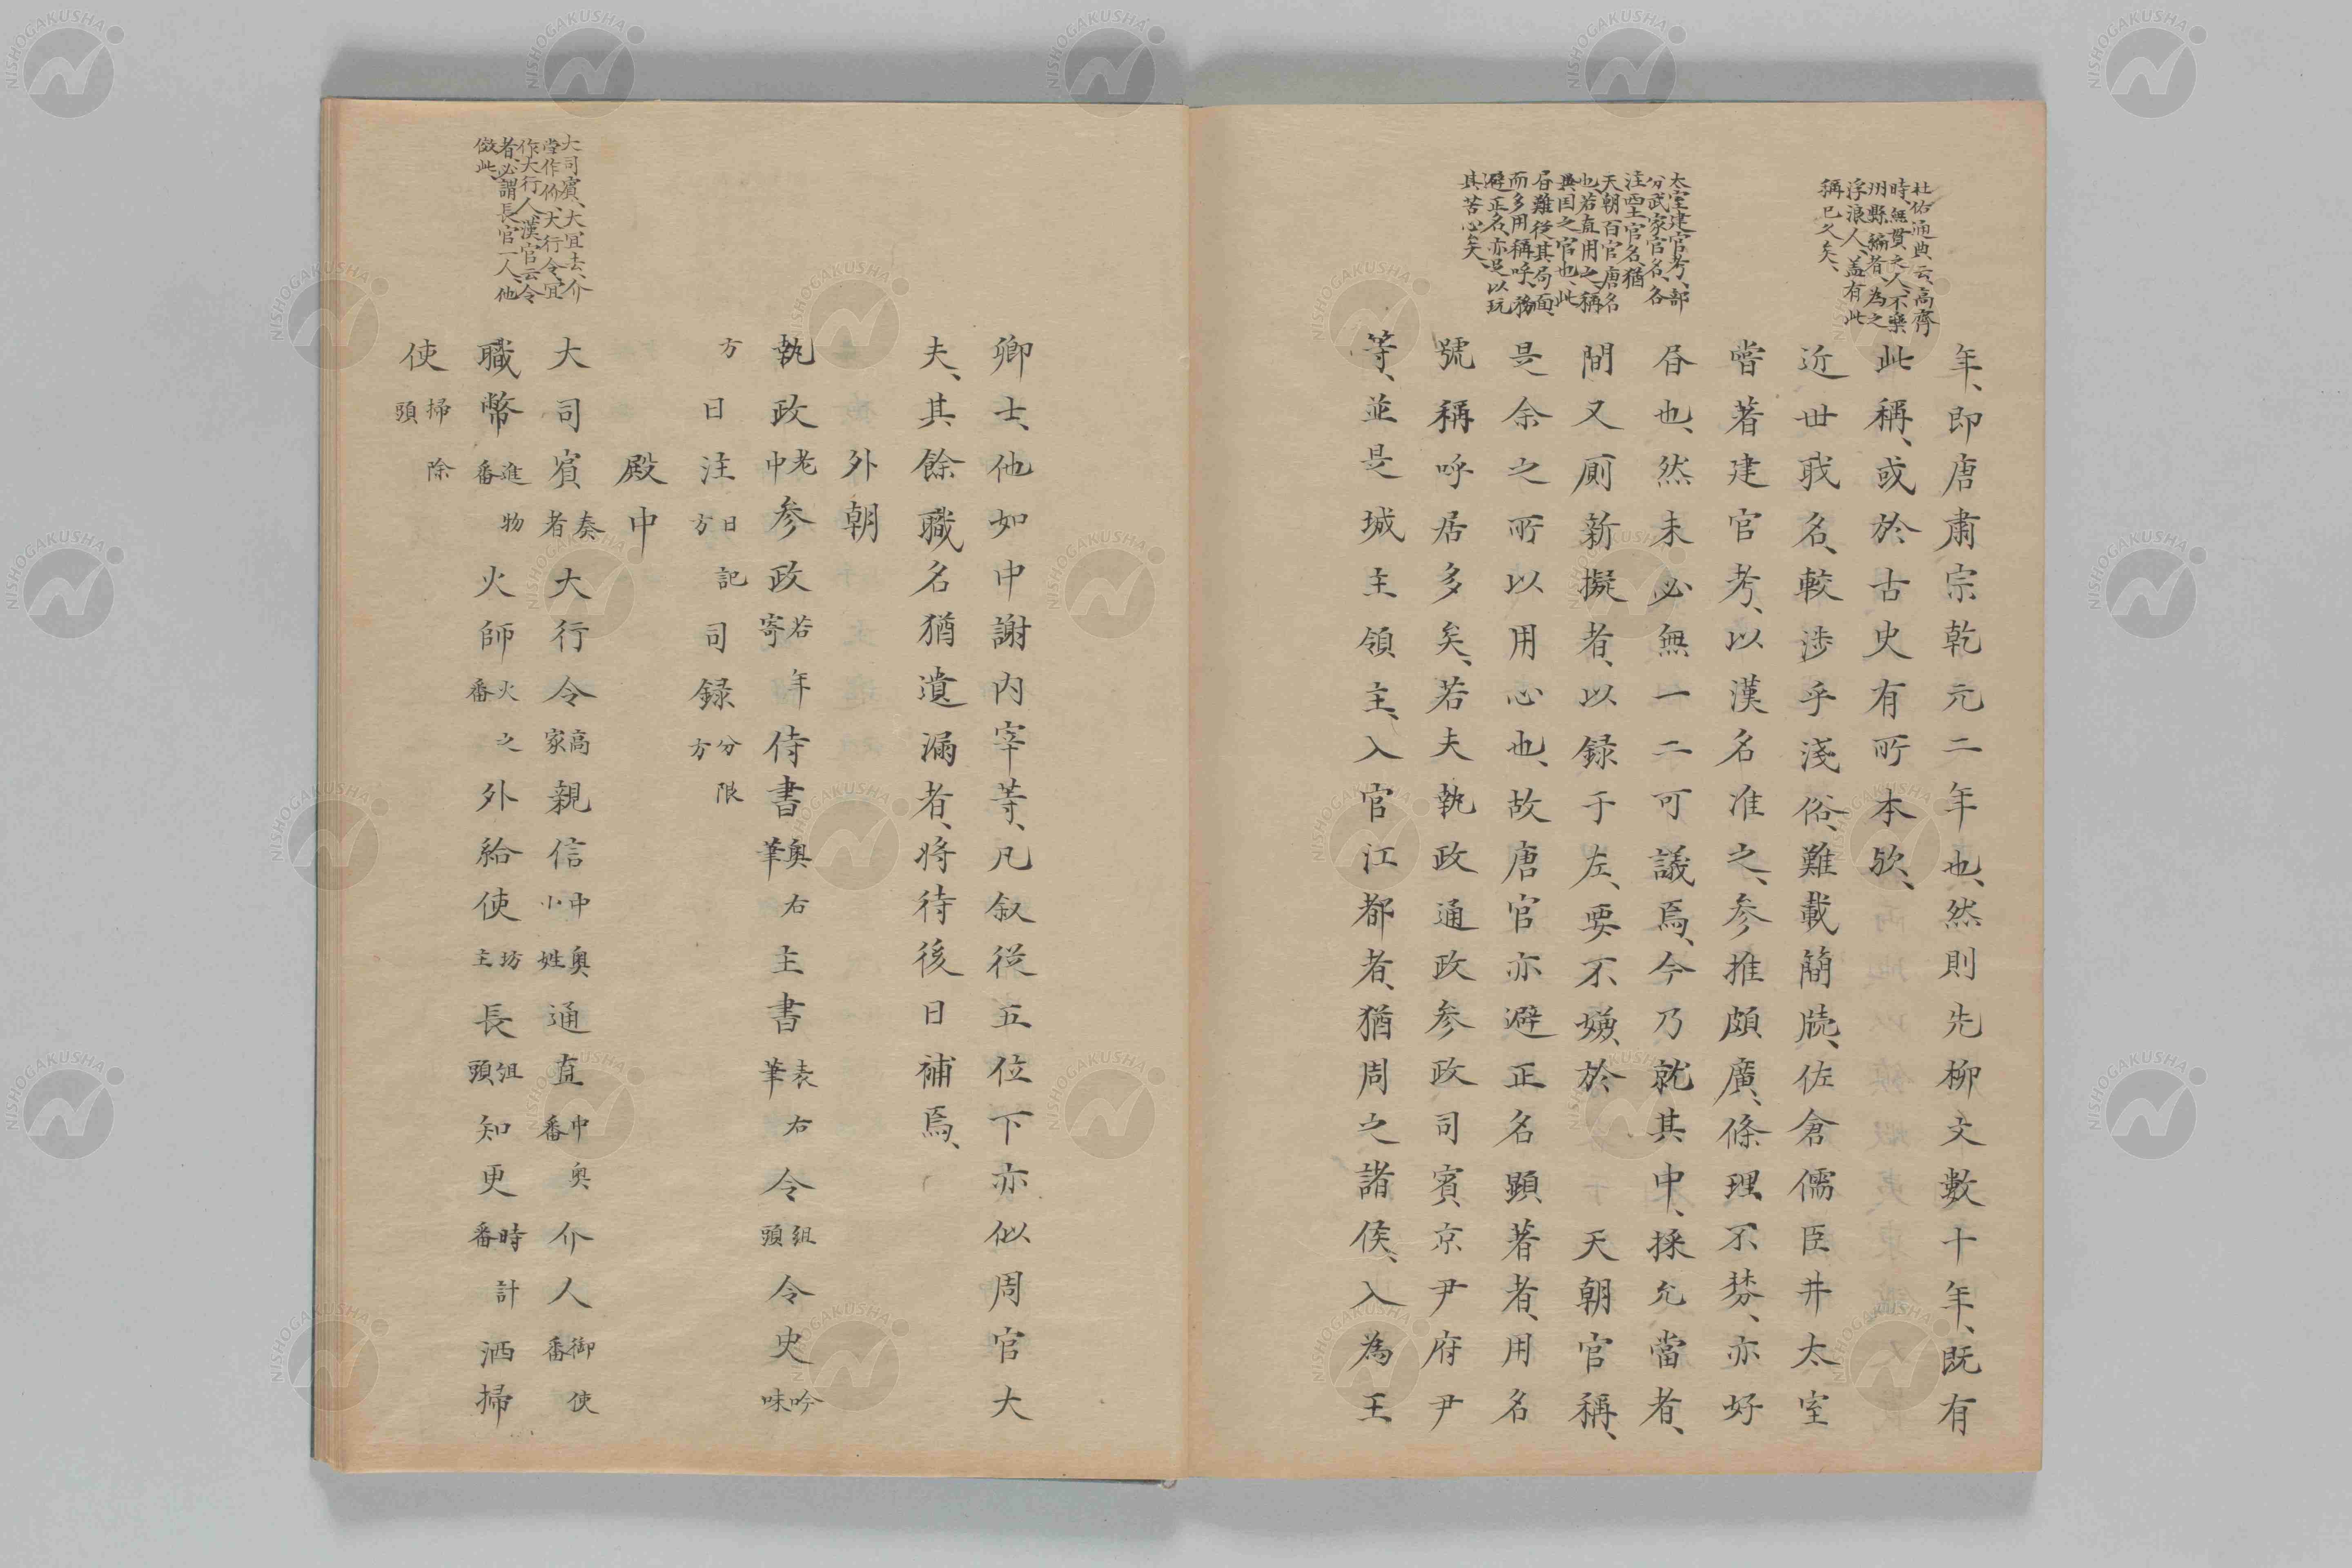 杜佑通典云、高齊
時、無貫之人、不樂
州縣編者、為之
浮浪人、盖有此
稱已久矣、
太室建官考、部
分武家官名、各
注西土官名、猶
天朝百官唐名
也、若直用之、稱
異国之官也、此
昏難從其局面、
而多用稱呼、務
避正名、亦足以玩
其苦心矣、
年、即唐肅宗乾元二年也、然則先柳文數十年、既有
此稱、或於古史有所本欤、
近世戝名、較渉乎淺俗、難載簡牍、佐倉儒臣井太室
嘗著建官考、以漢名准之、参推頗廣、條理不棼、亦好
昏也、然未必無一二可議焉、今乃就其中、採允當者、
間又厠新擬者、以録于左、要不嫌於天朝官稱、
是余之所以用心也、故唐官亦避正名顕著者、用名
號稱呼居多矣、若夫執政通政参政司賓、京尹府尹
等、並是城主領主、入官江都者、猶周之諸侯、入為王
卿士、他如中謝内宰等、凡叙從五位下亦似周官大
夫、其餘職名猶遺漏者、将待後日補焉、
外朝
執政老中参政若年寄侍書奥右筆主書表右筆令組頭令史吟味
方日注日記方司録分限方
殿中
大司賓、大宜去、介
當作价、大行令、宜
作大行人、漢官云令
者、必謂長官一人、他
倣此、
大司賓奏者大行令高家親信中奥小姓通直中奥番介人御使番
職幣進物番火師火之番外給使坊主長組頭知更時計番洒掃
使掃除頭
NISHOGAKUSHA